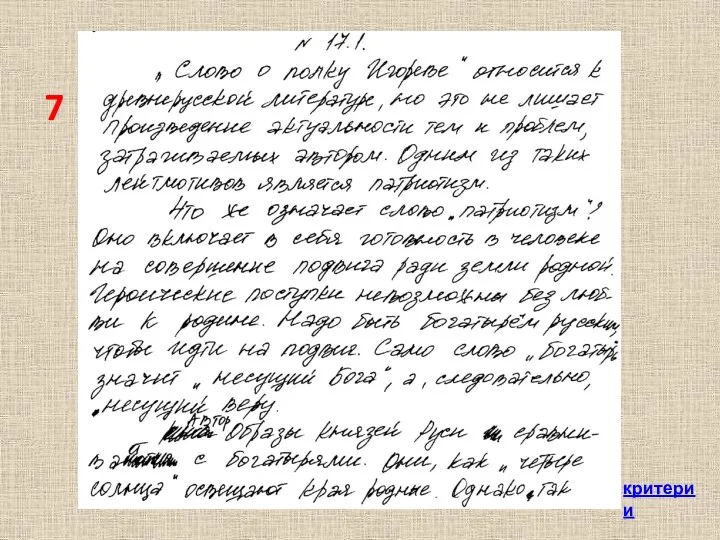 N 17.1.
„Слово о полку Игореве" относится к
7
древнерусской литературе, но это не лишает
произведение актуальности тем и проблем,
затрагиваемых автором. Одним из таких
лейтмотивов является патриотизм.
Что же означает слово „патриотизм"?
Оно включает в себя готовность в человеке
на совершение подвига ради земли родной.
Героические поступки невозможны без люб-
ви к родине. Надо быть богатырём русским,
чтобы идти на подвиг. Само слово „богатырь
значит „несущий Бога", а, следовательно,
„несущий веру.
Автор
Образы князей Руси сравни-
ва с богатырями. Они, как „четыре
солнца" освещают края родные. Однако, так
критери
и